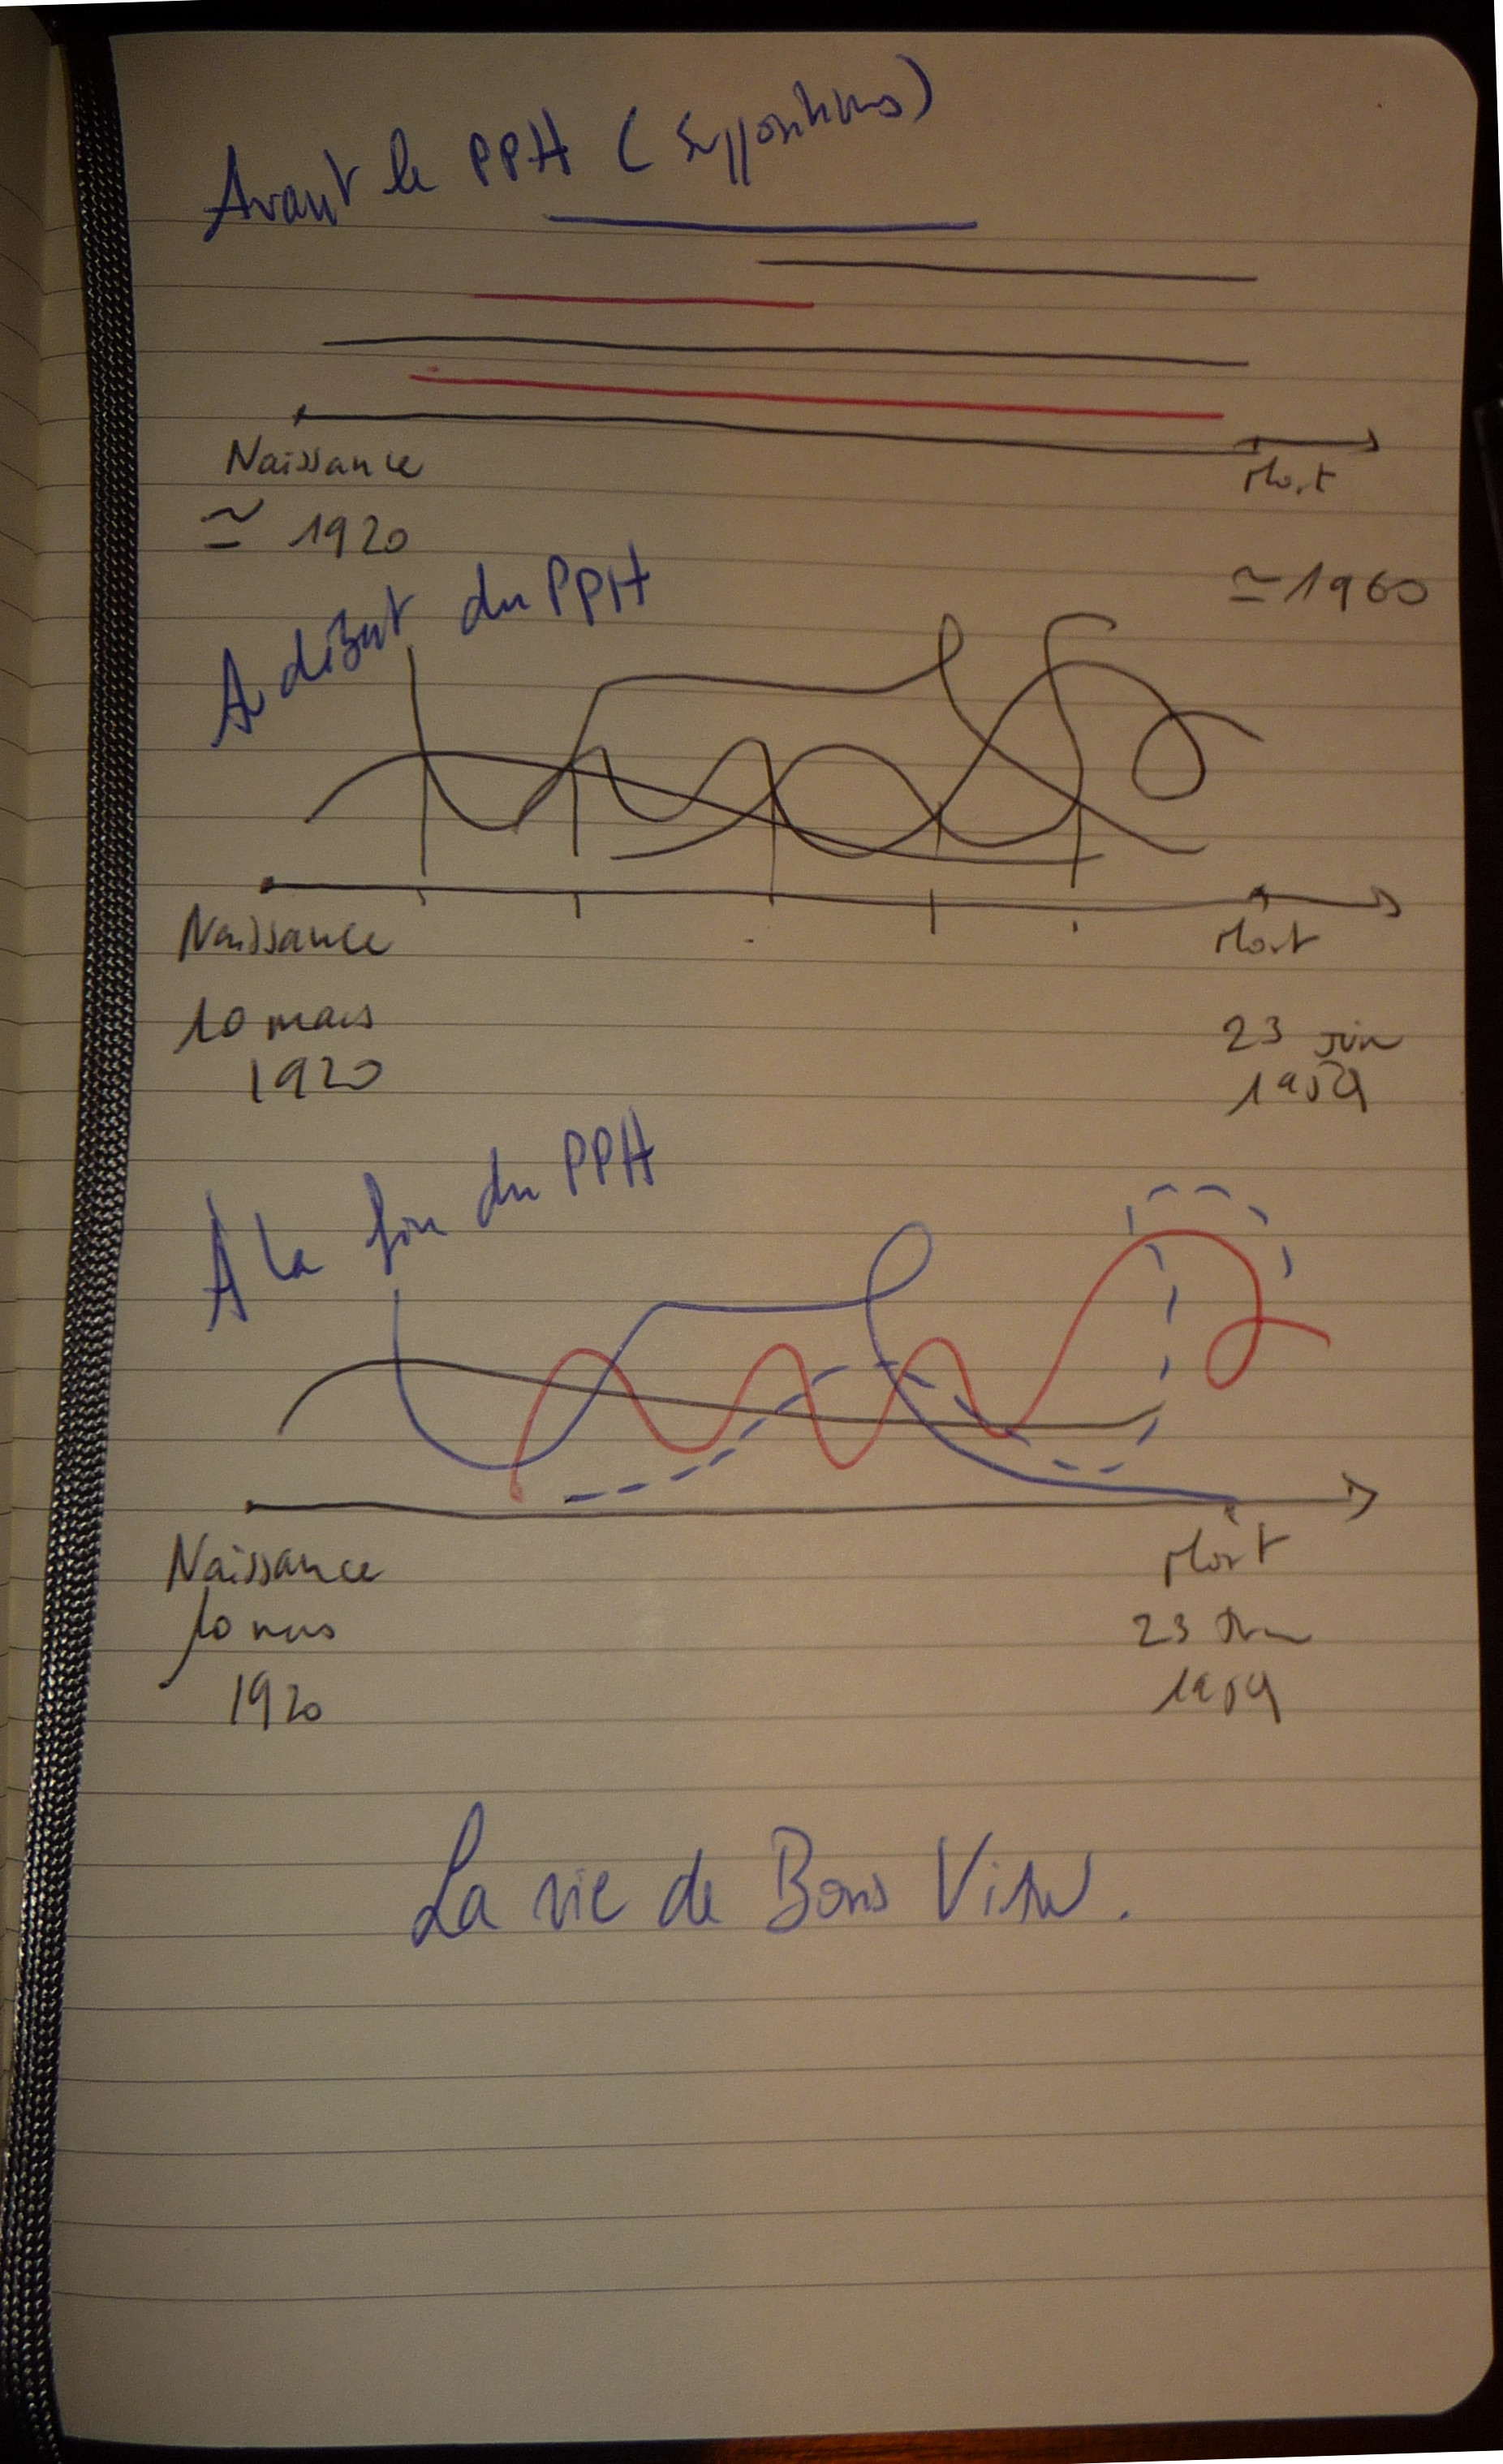 Avant le PPH (suppositions)
Naissance
≃ 1920
Mort
≃ 1960
Au début du PPH
Naissance
10 mars
1920
Mort
23 juin
1959
À la fin du PPH
Naissance
10 mars
1920
Mort
23 juin
1959
La vie de Boris Vian.